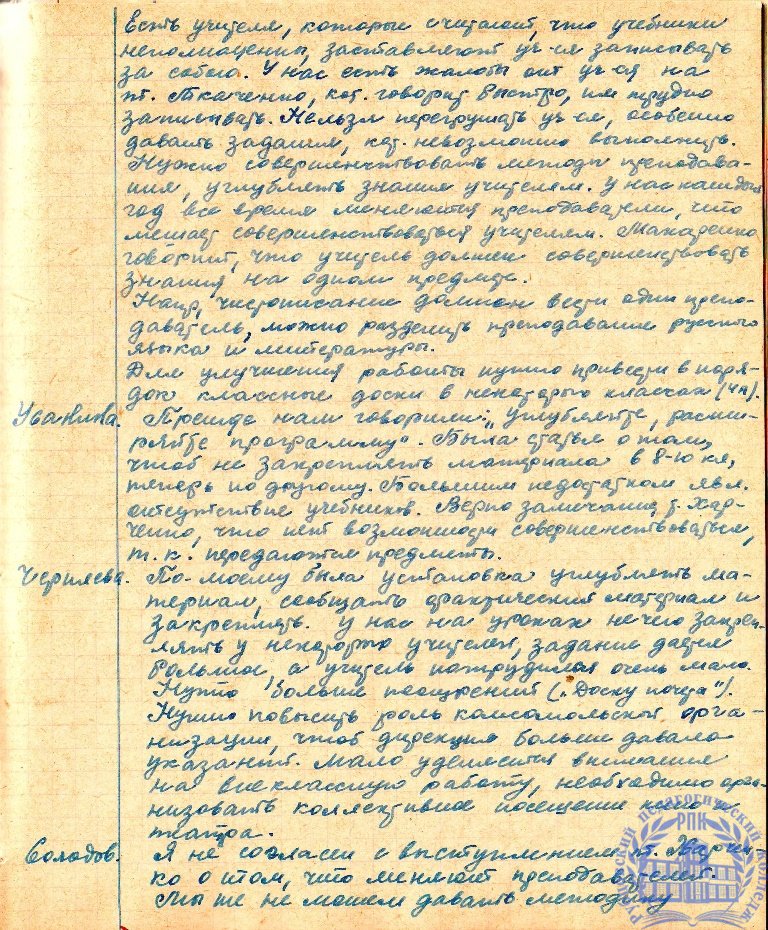 Есть учителя, которые считают, что учебники
неполноценны, заставляют уч-ся записывать
за собою. У нас есть жалобы от уч-ся на
т. Ткаченко, кот. говорит быстро, им трудно
записывать. Нельзя перегружать уч-ся, особенно
давать задания, кот. невозможно выполнить.
Нужно совершенствовать методы преподава-
ния, углублять знания учителям. У нас каждый
год все время меняются преподаватели, что
мешает совершенствоваться учителям. Макаренко
говорит, что учитель должен совершенствовать
знания на одном предмете.
Напр, чистописание должен вести один препо-
даватель, можно разделить преподавание русского
языка и литературы.
Для улучшения работы нужно привести в поря-
док классные доски в некоторых классах (4А).
Уванина. Прежде нам говорили: „Углубляйте, расши-
ряйте программу". Была статья о том,
чтоб не закреплять материала в 8-ю кл,
теперь по другому. Большим недостатком явл.
отсутствие учебников. Верно замечание т. Хар-
ченко, что нет возможности совершенствоваться,
т. к. передаются предметы.
Черняева. По-моему была установка углублять ма-
териал, сообщать фактический материал и
закреплять. У нас на уроках нечего закреп-
лять у некоторых учителей, задание дается
большое, а учитель потрудился очень мало.
Нужно больше поощрений („Доску почета").
Нужно повысить роль комсомольской орга-
низации, чтоб дирекция больше давала
указаний. Мало уделяется внимания
на внеклассную работу, необходимо орга-
низовать коллективное посещение кино и
театра.
Солодов. Я не согласен с выступлением т. Харчен-
ко о том, что меняют преподавателей.
Мы же не можем давать методику
РПК
педагогический колледж